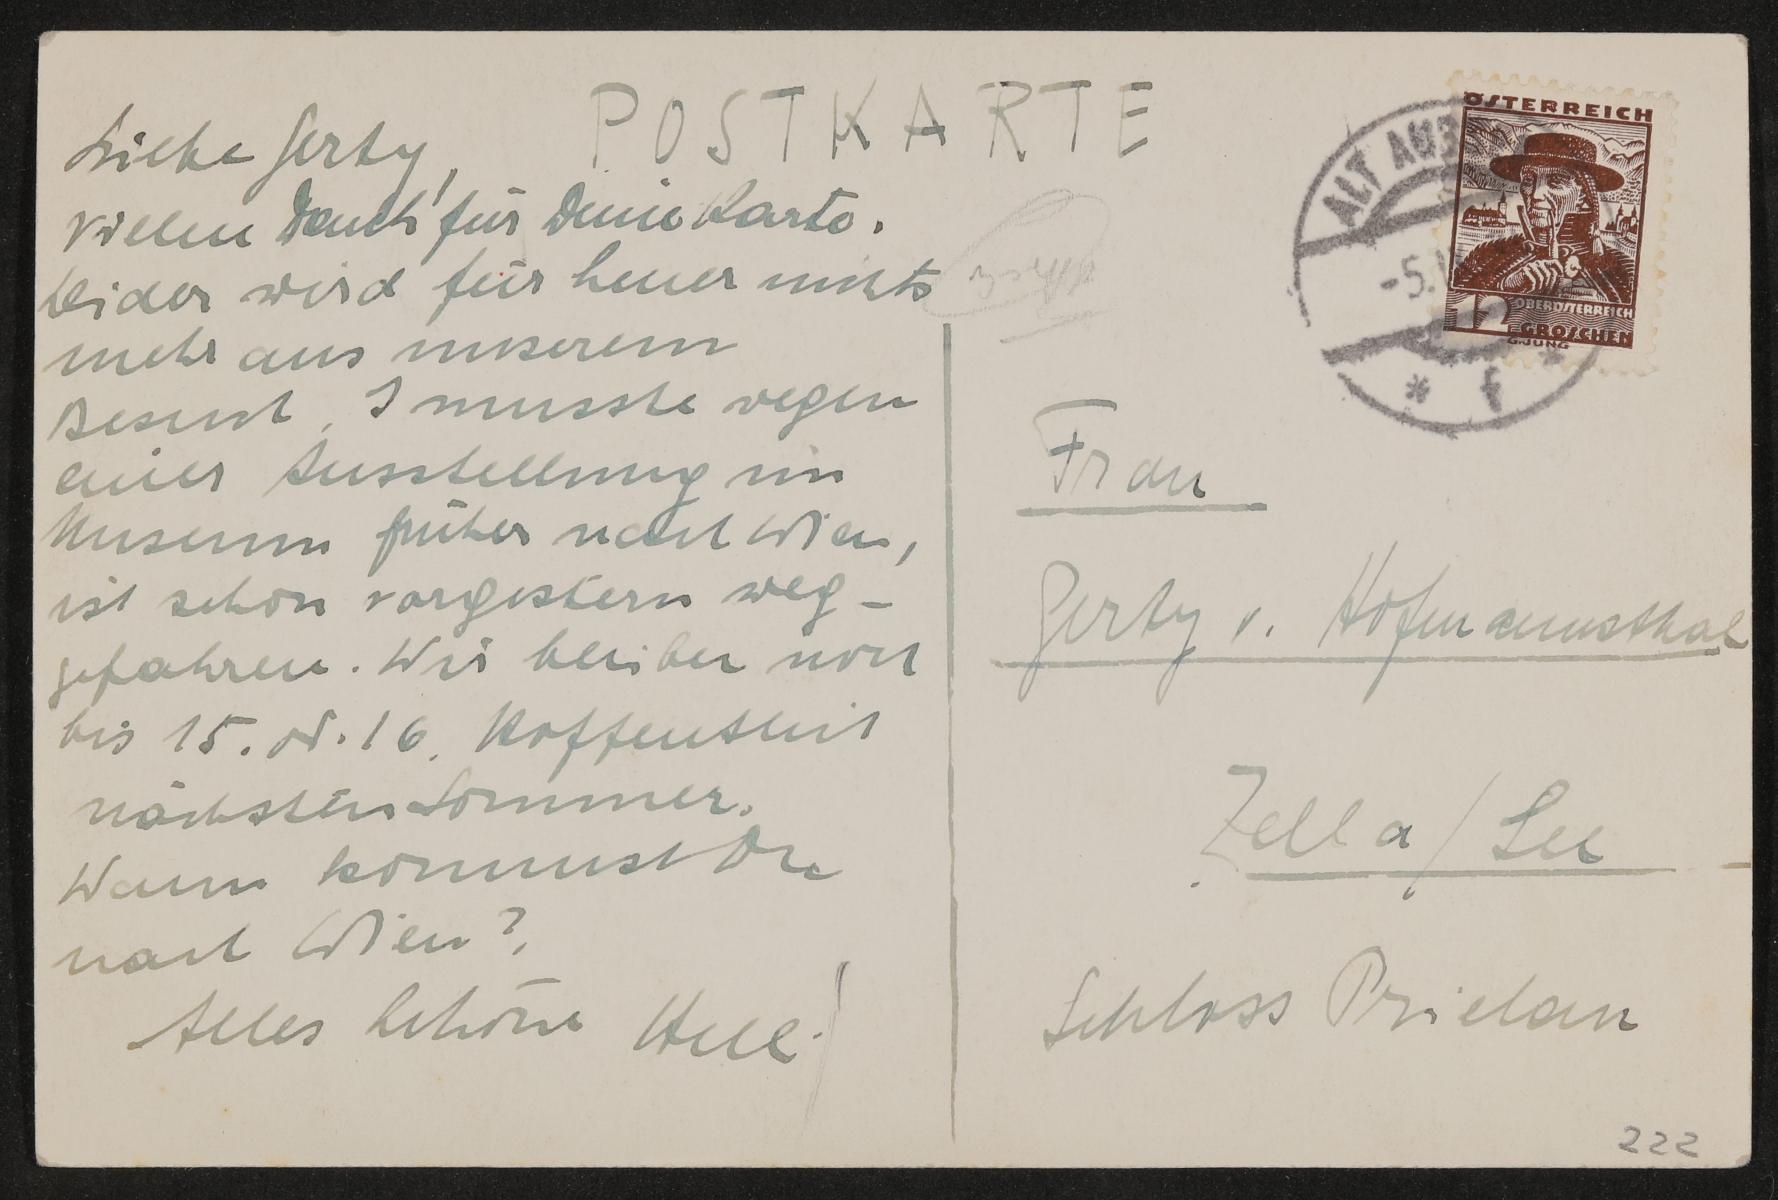 POSTKARTE
Liebe Gerty,
vielen Dank für Deine Karte.
Leider wird für heuer nichts
mehr aus unserem
Besuch. I musste wegen
einer Ausstellung im
Museum früher nach Wien,
ist schon vorgestern weg-
gefahren. Wir bleiben noch
bis 15. od. 16. Hoffentlich
nächsten Sommer.
Wann kommst Du
nach Wien?
Alles Schöne
ÖSTERREICH
OBERÖSTERREICH
12 GROSCHEN
G.JUNG
ALT AUS
-5.
* f *
Frau
Gerty v. Hofmannsthal
Zell a/See
Schloss Prielau
222